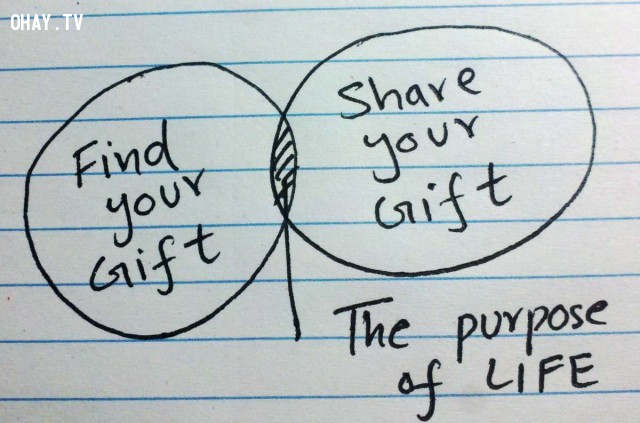 OHAY.TV
Find
your
Gift
Share
your
Gift
The purpose
of LIFE